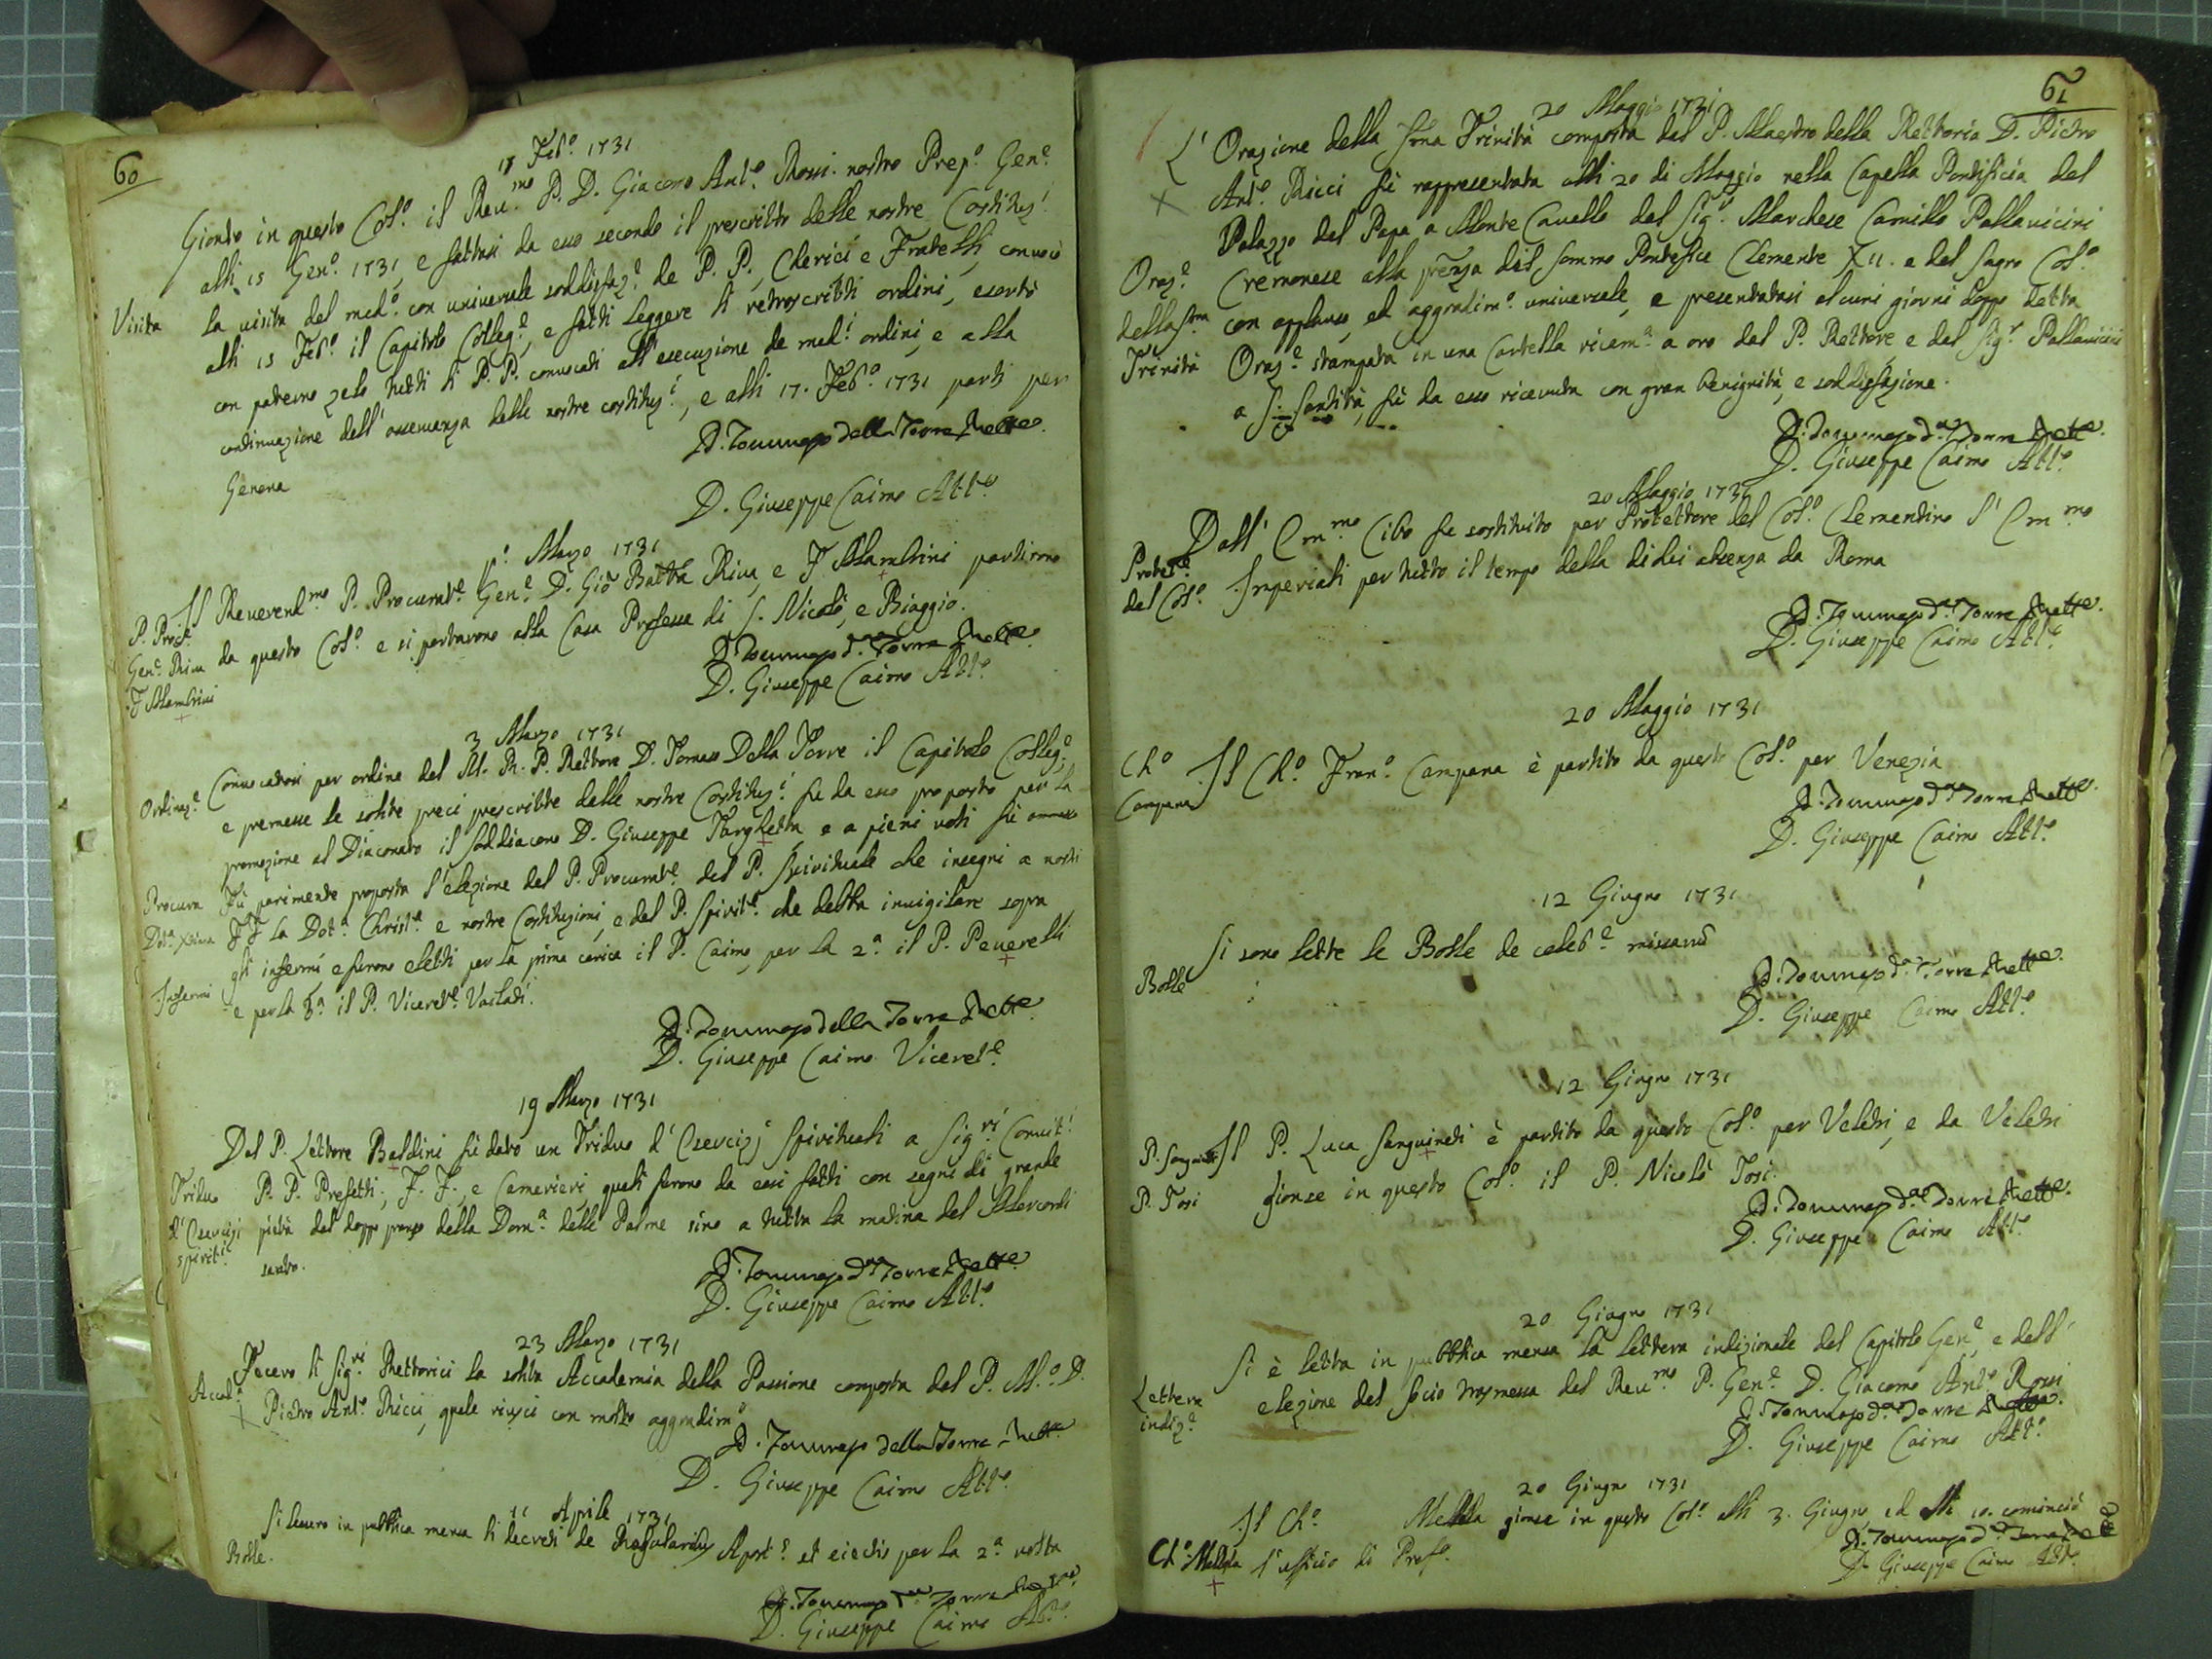 60
17 Feb.o 1731
Gionto in questo Col.o il Reu.mo P. D. Giacomo Ant.o Rossi nostro Prep.o Gen.e
alli 15 Gen.o 1731, e fattasi da esso secondo il prescritto delle nostre Costituz.i
Visita la visita del med.o con universale soddisfaz.e de P. P., Cherici e Fratelli, convocò
alli 15 Feb.o il Capitolo Colleg.e, e fatti leggere li retroscritti ordini, esortò
con paterno zelo tutti li P. P. convocati all' esecuzione de med.i ordini, e alla
continuazione dell' osservanza delle nostre costituz.i, e alli 17. Feb.o 1731 partì per
Genova
D. Tommaso della Torre Rett.e
D. Giuseppe Caimo Att.o
p.o Marzo 1731
Il Reverend.mo P. Procurat.e Gen.e D. Gio Batta Riva, e F Mambrini partirono
P. Proc.e
Gen.e Riva da questo Col.o e si portarono alla Casa Professa di S. Nicolò, e Biaggio.
F Mambrini
D. Tommaso d.a Torre Rett.e
D. Giuseppe Caimo Att.o
3 Marzo 1731
Ordinaz.e Convocatosi per ordine del M. R. P. Rettore D. Tomaso Della Torre il Capitolo Colleg.e,
e premesse le solite preci prescritte dalle nostre Costituz.i fu da esso proposto per la
promozione al Diaconato il Soddiacono D. Giuseppe Targhetta, e a pieni voti fù ammesso
Procura Fù parimente proposta l' elezione del P. Procurat.e del P. Spirituale che insegni a nostri
Dot.a Xtiana FF la Dot.a Christ.a e nostre Costituzioni, e del P. Spirit.e che debba invigilare sopra
Infermi gli infermi e furono eletti per la prima carica il P. Caimo, per la 2.a il P. Peverelli
e per la 3.a il P. Viceret.e Vailadi.
D. Tommaso della Torre Rett.e
D. Giuseppe Caimo Viceret.e
19 Marzo 1731
Dal P. Lettore Baldini fù dato un Triduo d' Esercizj Spirituali a Sig.ri Convit.i
Triduo P. P. Prefetti, F. F., e Camerieri, quali furono da essi fatti con segni di grande
d' Esercizj pietà dal doppo pranzo della Dom.a delle Palme sino a tutta la matina del Mercordì
spirit.i santo.
D. Tommaso d.a Torre Rett.e
D. Giuseppe Caimo Att.o
23 Marzo 1731
Fecero li Sig.ri Rettorici la solita Accademia della Passione composta dal P. M.o D.
Accad.a
X Pietro Ant.o Ricci, quale riuscì con molto aggradim.o
D. Tommaso della Torre Rett.e
D. Giuseppe Caimo Att.o
11 Aprile 1731
Si lessero in pubblica mensa li decreti de Regularibus Apost.s et eiectis per la 2.a volta
Bolle.
D. Tommaso d.a Torre Rett.e
D. Giuseppe Caimo Att.o
61
20 Maggio 1731
L' Orazione della Sma Trinità composta dal P. Maestro della Rettorica D. Pietro
X Ant.o Ricci fù rappresentata alli 20 di Maggio nella Capella Pontificia del
Palazzo del Papa a Monte Cavallo dal Sig.r Marchese Camillo Pallavicini
Oraz.e Cremonese alla prẽnza del Sommo Pontefice Clemente XII. e del Sagro Col.o
della Sma con applauso, ed aggradim.o universale, e presentatasi alcuni giorni doppo detta
Trinità Oraz.e stampata in una Cartella ricam.a a oro dal P. Rettore, e dal Sig.r Pallavicini
a S. Santità, fù da esso ricevuta con gran benignità, e soddisfazione.
D. Tommaso d.a Torre Rett.e
D. Giuseppe Caimo Att.o
20 Maggio 1731
Dall' Em.mo Cibo fu sostituito per Protettore del Col.o Clementino l' Em.mo
Protet.e
del Col.o Imperiali per tutto il tempo della di lui absenza da Roma
D. Tommaso d.a Torre Rett.e
D. Giuseppe Caimo Att.o
20 Maggio 1731
Ch.o Il Ch.o Fran.o Campana è partito da questo Col.o per Venezia
Campana
D. Tommaso d.a Torre Rett.e
D. Giuseppe Caimo Att.o
12 Giugno 1731
Si sono lette le Bolle de celeb.e missarũ
Bolle
D. Tommaso d.a Torre Rett.e
D. Giuseppe Caimo Att.o
12 Giugno 1731
P. Sanguineti Il P. Luca Sanguineti è partito da questo Col.o per Veletri, e da Veletri
P. Tosi gionse in questo Col.o il P. Nicolò Tosi.
D. Tommaso d.a Torre Rett.e
D. Giuseppe Caimo Att.o
20 Giugno 1731
Si è letta in pubblica mensa la lettera indizionale del Capitolo Gen.e, e dell'
Lettera elezione del Socio trasmessa dal Reu.mo P. Gen.e D. Giacomo Ant.o Rossi
indiz.e
D. Tommaso d.a Torre Rett.e
D. Giuseppe Caimo Att.o
20 Giugno 1731
Il Ch.o Mella gionse in questo Col.o alli 3. Giugno, ed alli 10. cominciò
Ch.o Mella l' ufficio di Pref.o
D. Tommaso d.a Torre Rett.e
D. Giuseppe Caimo Att.o